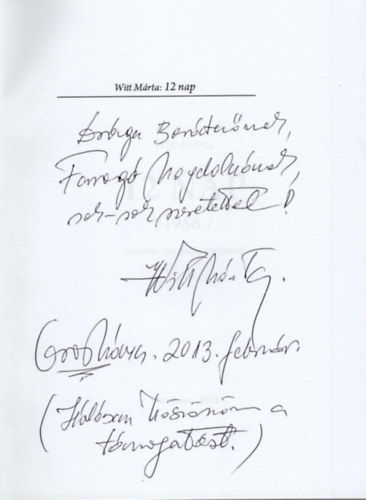 Witt Márta: 12 nap
Drága Barátnőmnek,
Faragó Magdolnának,
sok-sok szeretettel!
Witt Márta.
2013. február
(Hálásan köszönöm a
támogatást.)